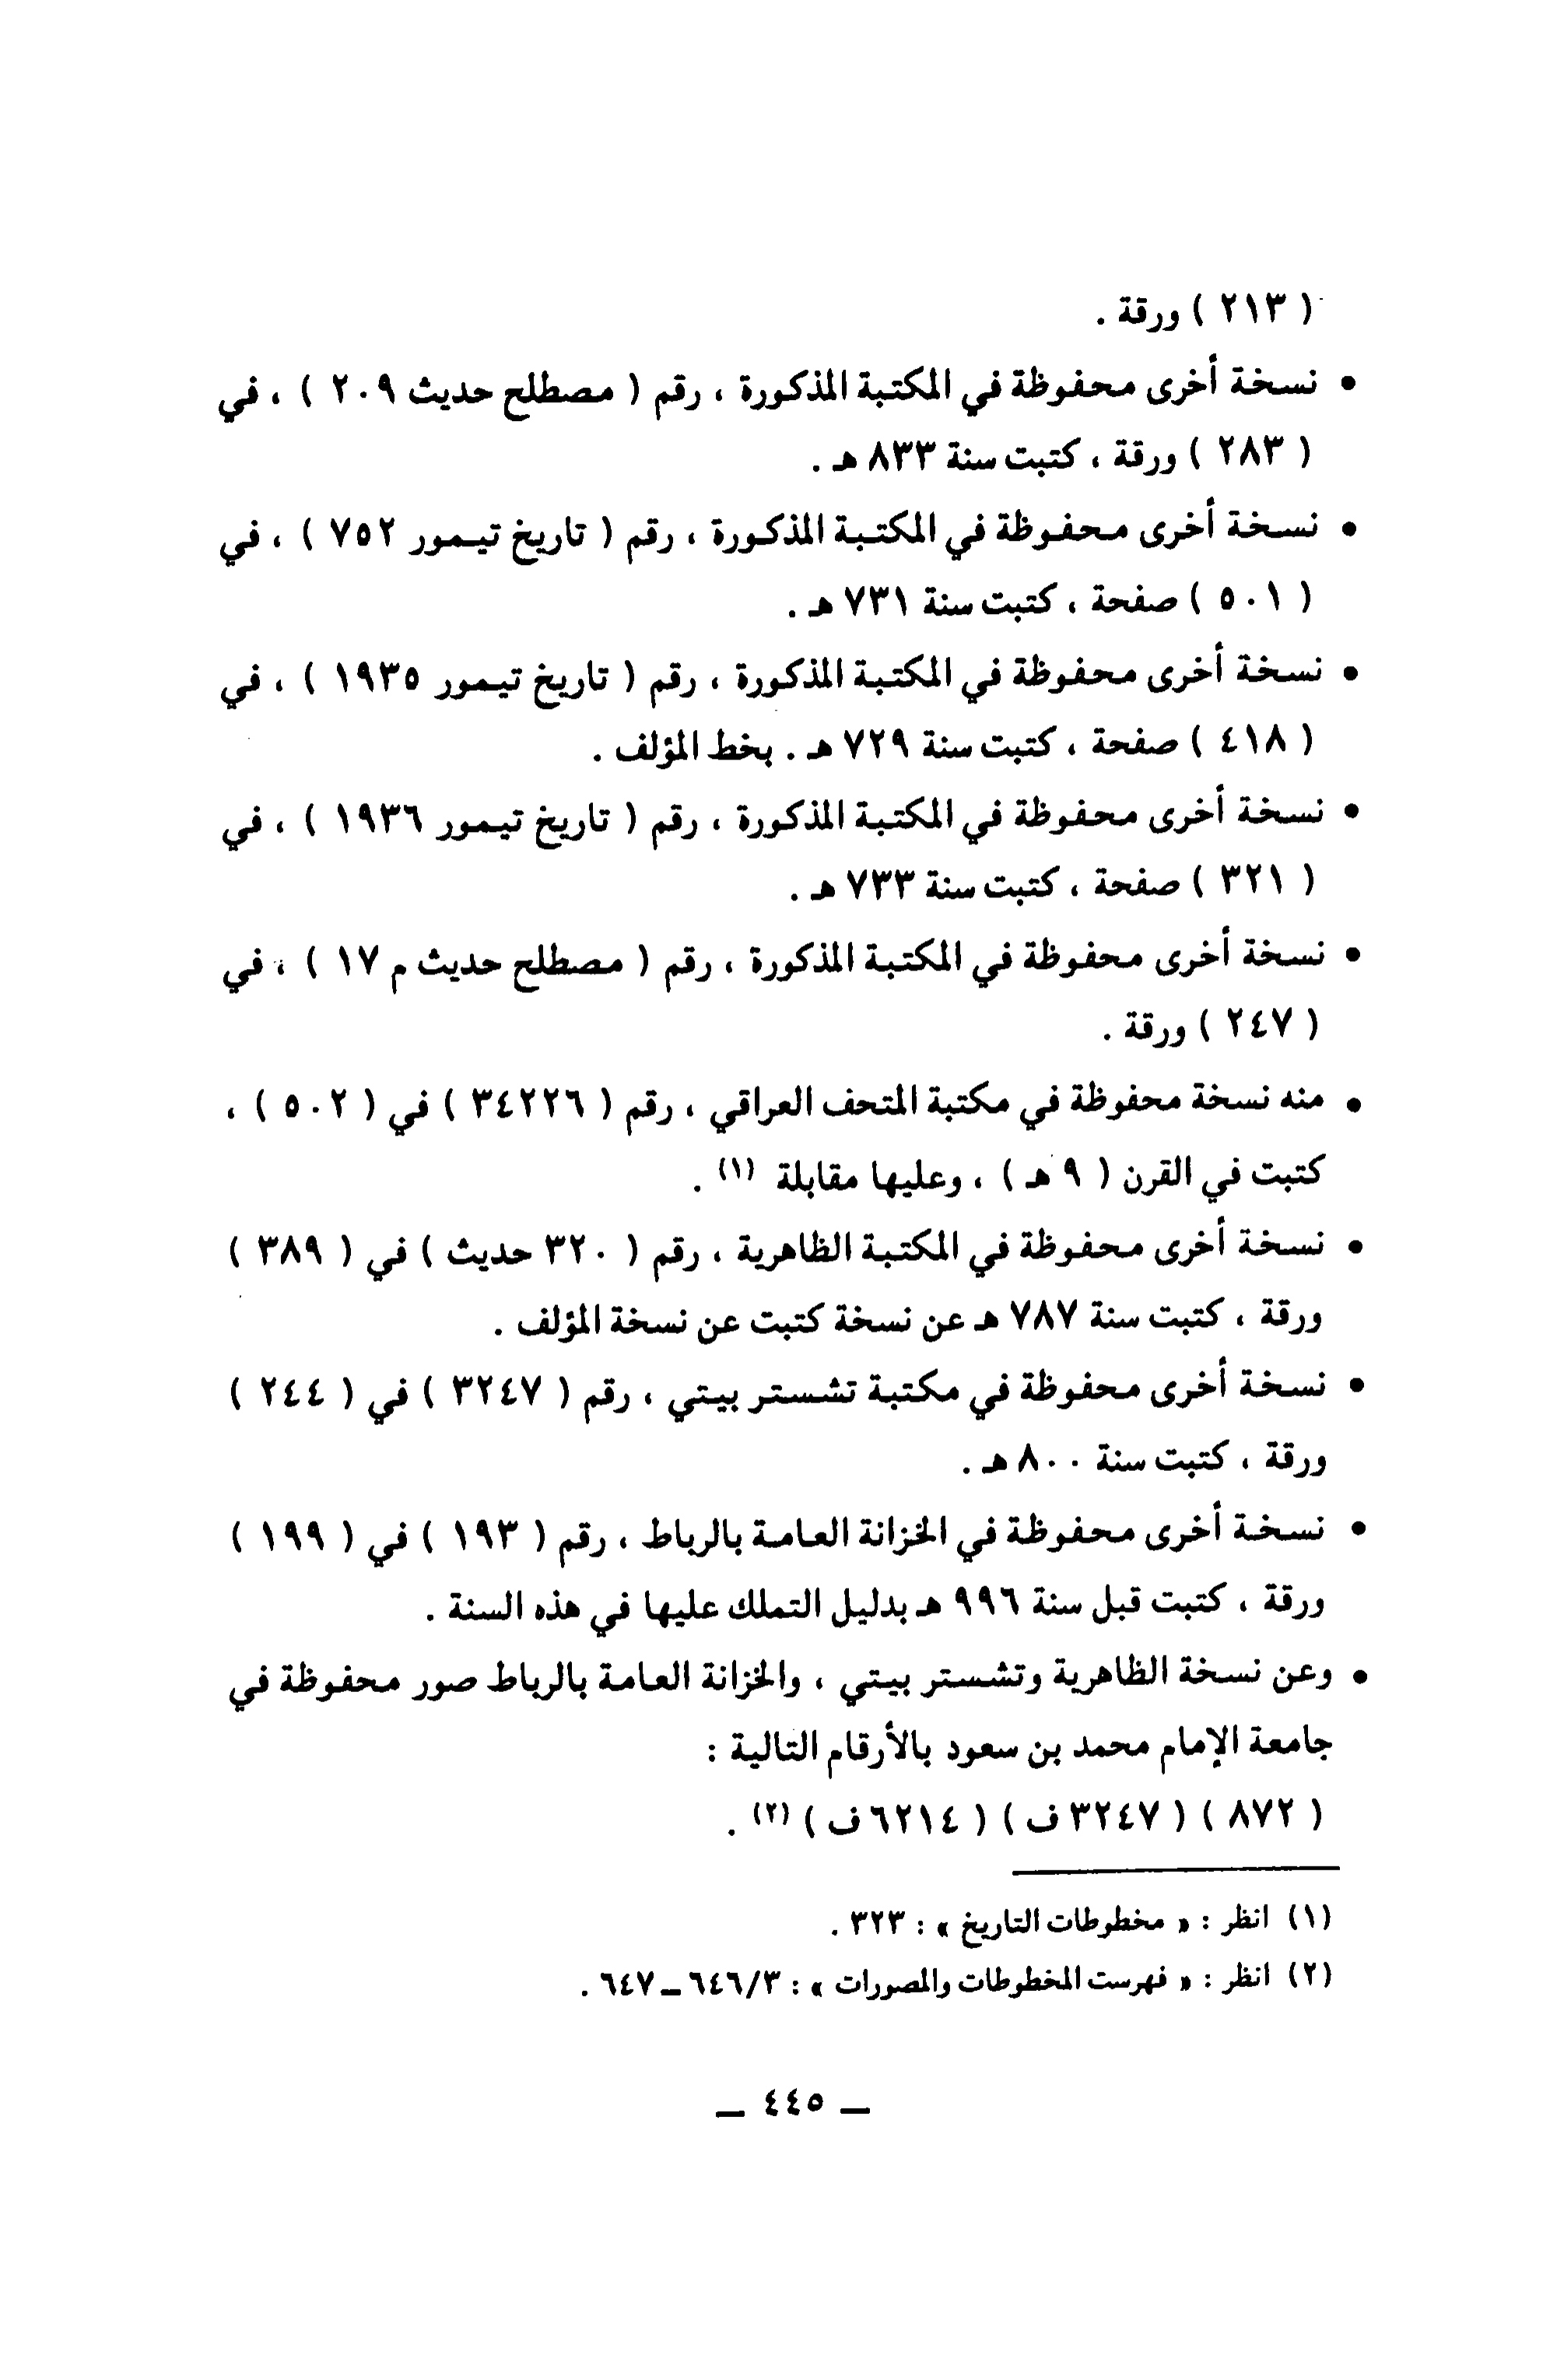 ( ٢١٣ ) ورقة .
• نسخة أخرى محفوظة في المكتبة المذكورة ، رقم ( مصطلح حديث ٢٠٩ ) ، في
( ٢٨٣ ) ورقة ، كتبت سنة ٨٣٣ هـ .
• نسخة أخرى محفوظة في المكتبة المذكورة ، رقم ( تاريخ تيمور ٧٥٢ ) ، في
( ٥٠١ ) صفحة ، كتبت سنة ٧٣١ هـ .
• نسخة أخرى محفوظة في المكتبة المذكورة ، رقم ( تاريخ تيمور ١٩٣٥ ) ، في
( ٤١٨ ) صفحة ، كتبت سنة ٧٢٩ هـ . بخط المؤلف .
• نسخة أخرى محفوظة في المكتبة المذكورة ، رقم ( تاريخ تيمور ١٩٣٦ ) ، في
( ٣٢١ ) صفحة ، كتبت سنة ٧٣٣ هـ .
• نسخة أخرى محفوظة في المكتبة المذكورة ، رقم ( مصطلح حديث م ١٧ ) ، في
( ٢٤٧ ) ورقة .
• منه نسخة محفوظة في مكتبة المتحف العراقي ، رقم ( ٣٤٢٢٦ ) في ( ٥٠٢ ) ،
كتبت في القرن ( ٩ هـ ) ، وعليها مقابلة (١) .
• نسخة أخرى محفوظة في المكتبة الظاهرية ، رقم ( ٣٢٠ حديث ) في ( ٣٨٩ )
ورقة ، كتبت سنة ٧٨٧ هـ عن نسخة كتبت عن نسخة المؤلف .
• نسخة أخرى محفوظة في مكتبة تشستر بيتي ، رقم ( ٣٢٤٧ ) في ( ٢٤٤ )
ورقة ، كتبت سنة ٨٠٠ هـ .
• نسخة أخرى محفوظة في الخزانة العامة بالرباط ، رقم ( ١٩٣ ) في ( ١٩٩ )
ورقة ، كتبت قبل سنة ٩٩٦ هـ بدليل التملك عليها في هذه السنة .
• وعن نسخة الظاهرية وتشستر بيتي ، والخزانة العامة بالرباط صور محفوظة في
جامعة الإمام محمد بن سعود بالأرقام التالية :
( ٨٧٢ ) ( ٣٢٤٧ ف ) ( ٦٢١٤ ف ) (٢) .
(١) انظر : « مخطوطات التاريخ » : ٣٢٣ .
(٢) انظر : « فهرست المخطوطات والمصورات » : ٦٤٦/٣ ـ ٦٤٧ .
ـ ٤٤٥ ـ